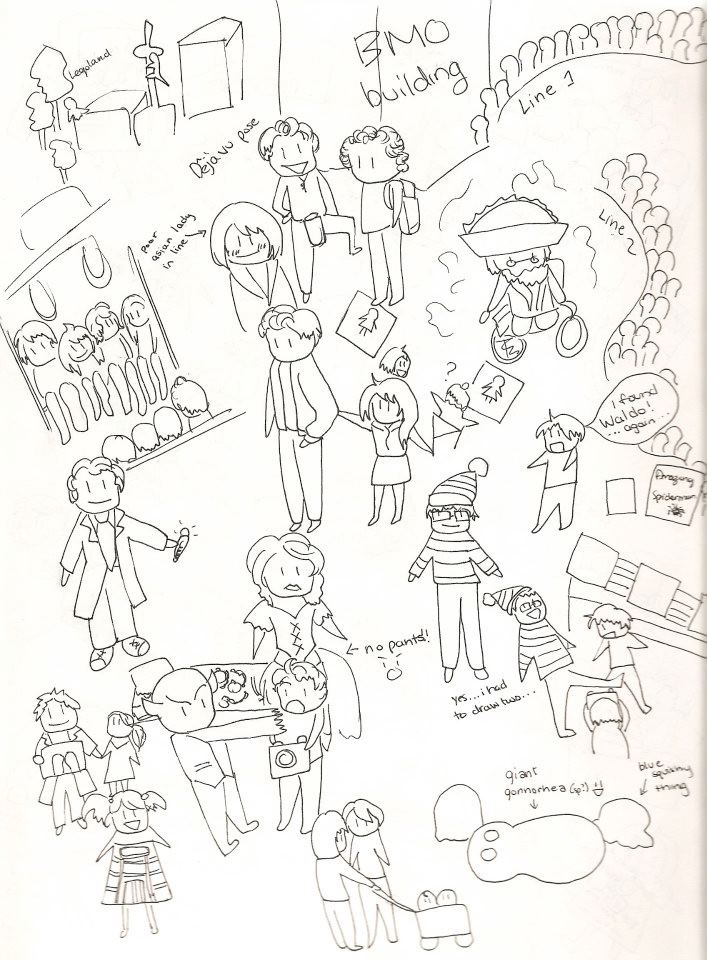 Legoland
BMO
building
Line 1
Déjà vu pose
poor
asian lady
in line
Line 2
?
I found
Waldo!
...again...
Amazing
Spiderman
no pants!
yes...i had
to draw two...
giant
gonnorhea (sp?)
blue
squirmy
thing